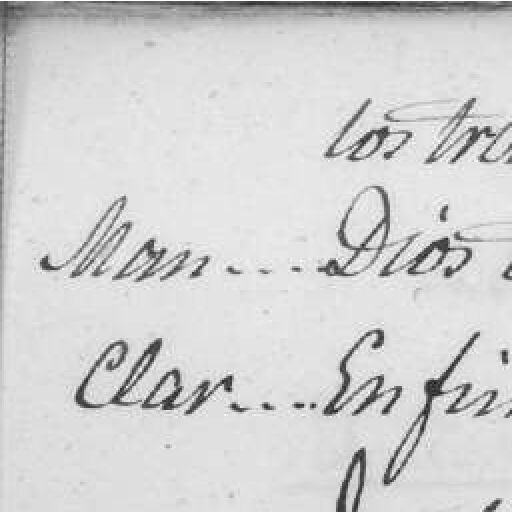 los tre
Man.... Dios
Clar.... En fin